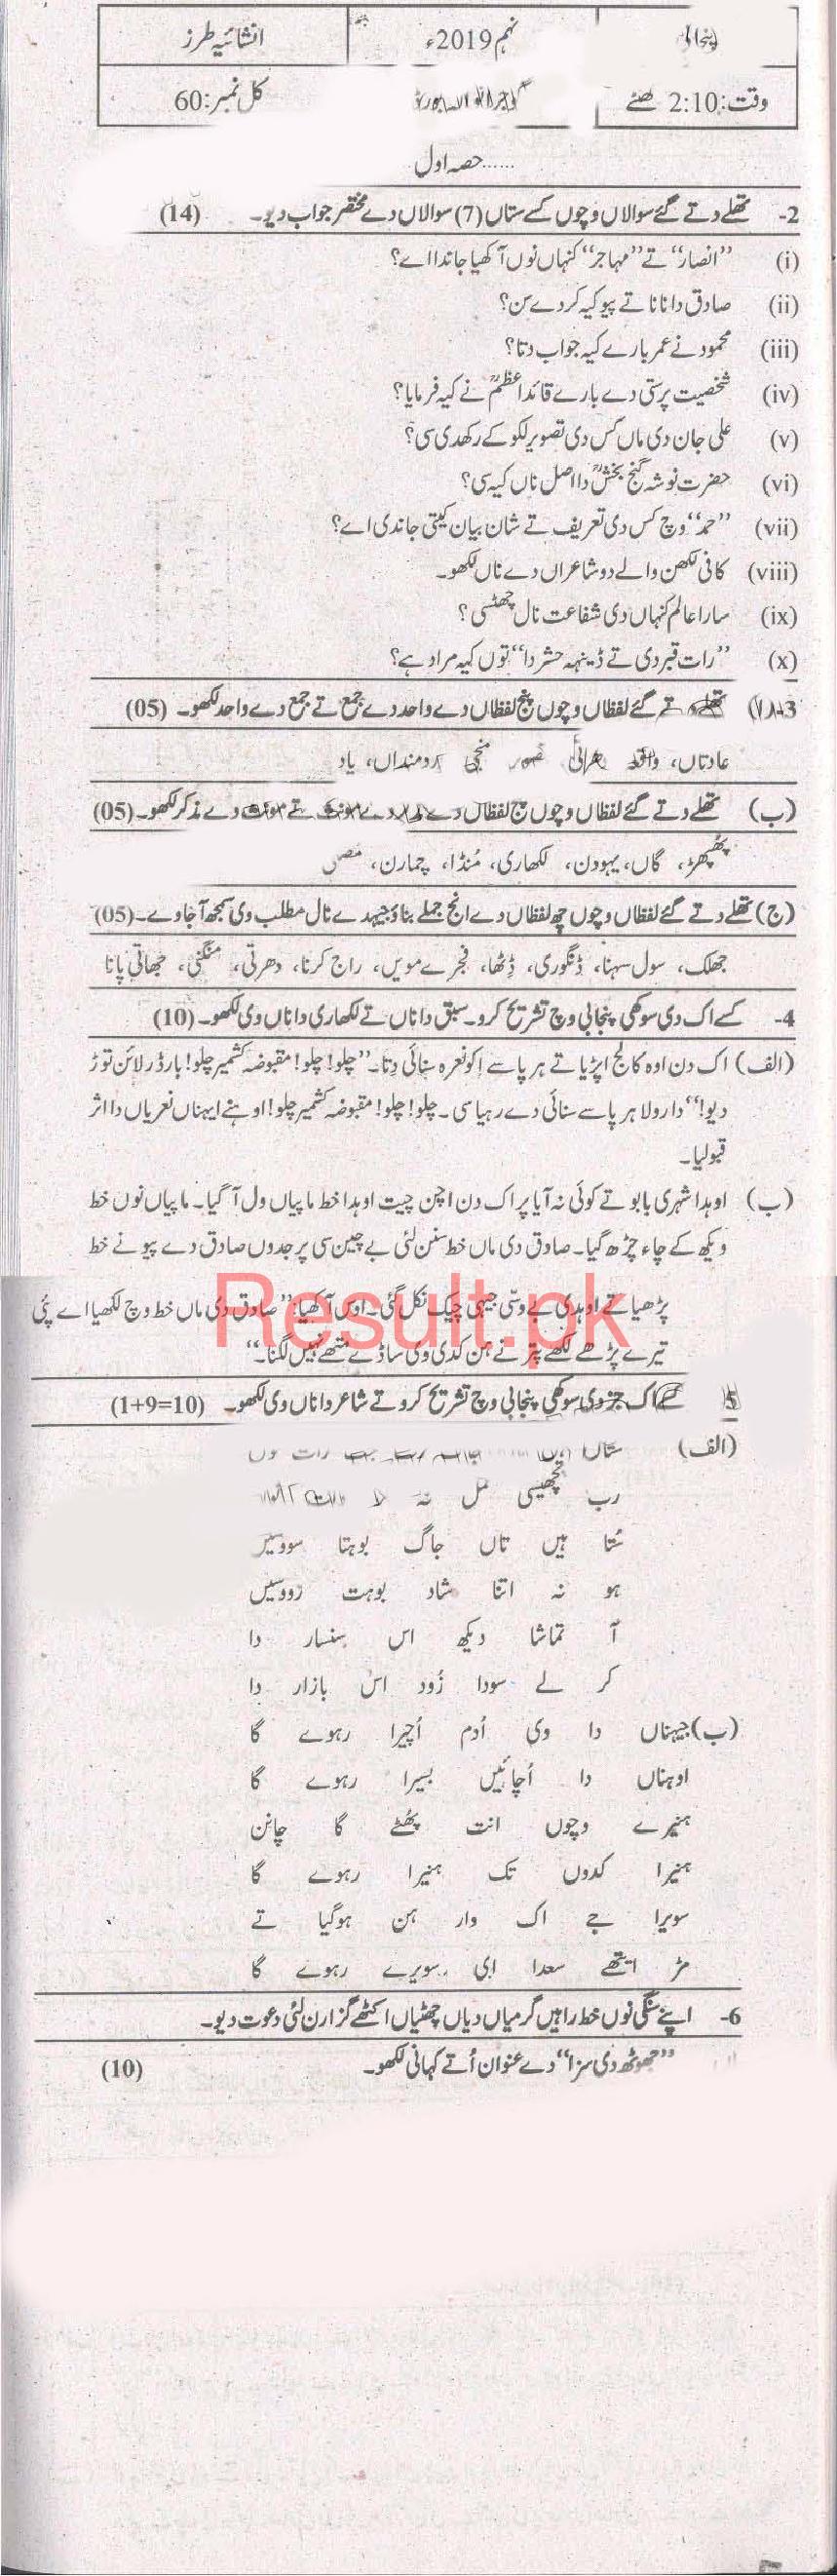 پنجابی نہم 2019ء انشائیہ طرز
وقت: 2:10 گھنٹے کل نمبر: 60
......حصہ اول
2- تھلے دتے گئے سوالاں وچوں کسے ستاں (7) سوالاں دے مختصر جواب دیو۔ (14)
(i) ’’انصار‘‘ تے ’’مہاجر‘‘ کنہاں نوں آکھیا جاندا اے؟
(ii) صادق دا نانا تے پیو کیہ کردے سن؟
(iii) محمود نے عمر بارے کیہ جواب دتا؟
(iv) شخصیت پرستی دے بارے قائداعظمؒ نے کیہ فرمایا؟
(v) علی جان دی ماں کس دی تصویر لکو کے رکھدی سی؟
(vi) حضرت نوشہ گنج بخشؒ دا اصل ناں کیہ سی؟
(vii) ’’حمد‘‘ وچ کس دی تعریف تے شان بیان کیتی جاندی اے؟
(viii) کافی لکھن والے دو شاعراں دے ناں لکھو۔
(ix) سارا عالم کنہاں دی شفاعت نال چھٹسی؟
(x) ’’رات قبر دی تے ڈینہہ حشر دا‘‘ توں کیہ مراد ہے؟
3- تھلے دتے گئے لفظاں وچوں پنج لفظاں دے واحد دے جمع تے جمع دے واحد لکھو۔ (05)
عادتاں، واقعہ منجی دمنداں، یاد
(ب) تھلے دتے گئے لفظاں وچوں پنج لفظاں دے مذکر دے مونث تے مونث دے مذکر لکھو۔ (05)
پھپھڑ، گاں، یہودن، لکھاری، مُنڈا، چمارن،
(ج) تھلے دتے گئے لفظاں وچوں پنج لفظاں دے انج جملے بناؤ جیہدے نال مطلب وی سمجھ آ جاوے۔ (05)
جھلک، سول سہنا، ڈنگوری، ڈِٹھا، فجرے مویں، راج کرنا، دھرتی، منگنی، جھاتی پانا
4- کسے اک دی سوکھی پنجابی وچ تشریح کرو۔ سبق دا ناں تے لکھاری دا ناں وی لکھو۔ (10)
(الف) اک دن اوہ کالج اپڑیا تے ہر پاسے اِکو نعرہ سنائی دِتا۔ ’’چلو! چلو! مقبوضہ کشمیر چلو! بارڈر لائن توڑ
دیو!‘‘ دا رولا ہر پاسے سنائی دے رہیا سی۔ چلو! چلو! مقبوضہ کشمیر چلو! اوہنے ایہناں نعریاں دا اثر
قبولیا۔
(ب) اوہدا شہری بابو تے کوئی نہ آیا پر اک دن اچن چیت اوہدا خط ماپیاں ول آ گیا۔ ماپیاں نوں خط
ویکھ کے چاء چڑھ گیا۔ صادق دی ماں خط سنن لئی بے چین سی پر جدوں صادق دے پیو نے خط
پڑھیا تے اوہدی بے وسّی جیہی چیک نکل گئی۔ اوس آکھیا: ’’صادق دی ماں خط وچ لکھیا اے پئی
تیرے پڑھے لکھے پتر نے ہن کدی وی ساڈے متھے نہیں لگنا۔‘‘
Result.pk
5 کسے اک جز دی سوکھی پنجابی وچ تشریح کرو تے شاعر دا ناں وی لکھو۔ (1+9=10)
(الف) رات
رب پچھیسی عمل نہ
سُتا ہیں تاں جاگ بوہتا سوویں
ہو نہ اتنا شاد بوہت رووسیں
آ تماشا دیکھ اس سنسار دا
کر لے سودا زُود اس بازار دا
(ب) جیہناں دا وی اُدم اُچیرا رہوے گا
اوہناں دا اُچائیں بسیرا رہوے گا
ہنیرے وچوں انت پھُٹے گا چانن
ہنیرا کدوں تک ہنیرا رہوے گا
سویرا جے اک وار ہن ہوگیا تے
مڑ ایتھے سدا ای سویرے رہوے گا
6- اپنے سنگی نوں خط راہیں گرمیاں دیاں چھٹیاں اکٹھے گزارن لئی دعوت دیو۔
’’جھوٹھ دی سزا‘‘ دے عنوان اُتے کہانی لکھو۔ (10)